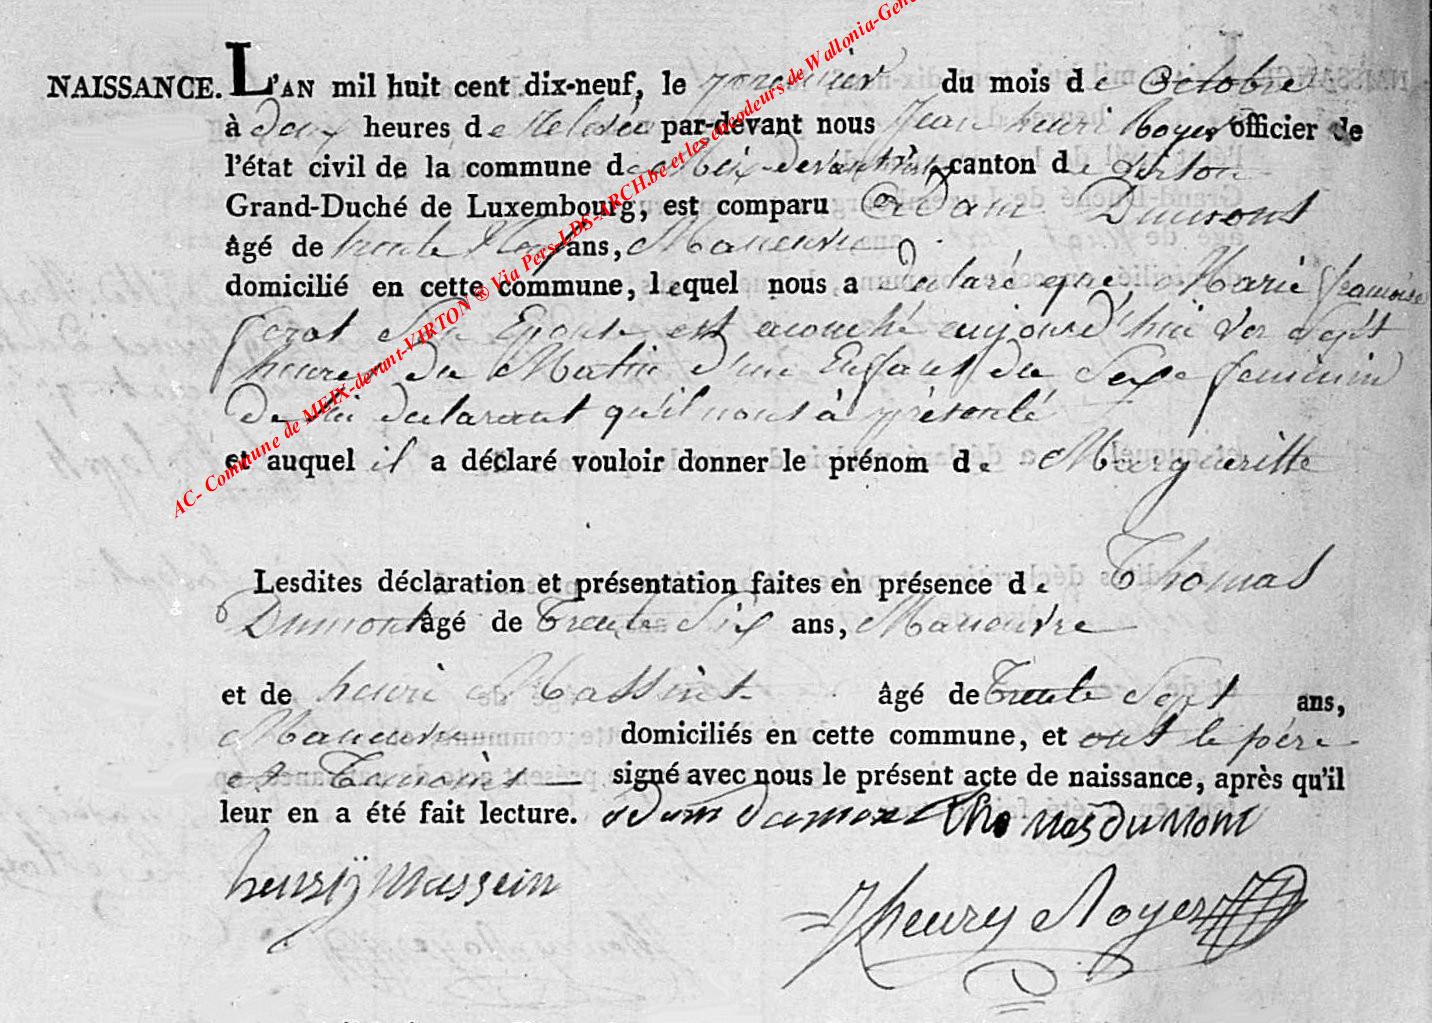 NAISSANCE. L'AN mil huit cent dix-neuf, le premier du mois de Octobre
à deux heures de Relevée par-devant nous Jean henri Royer officier de
l'état civil de la commune de Meix devant Virton canton de Virton
Grand-Duché de Luxembourg, est comparu Adam Dumont
âgé de trente Neuf ans, Maneuvre
domicilié en cette commune, lequel nous a déclaré que, Marie francoise
son Epouse est acouché aujourd'hui vers Sept
heures du Matin d'un Enfant du Sexe feminin
de lui declarant qu'il nous à présenté
et auquel il a déclaré vouloir donner le prénom de Margueritte
Lesdites déclaration et présentation faites en présence de Thomas
Dumont âgé de Trente Six ans, Maneuvre
et de henri Massint âgé de Trente Sept ans,
Maneuvre domiciliés en cette commune, et ont le père
et Temoins signé avec nous le présent acte de naissance, après qu'il
leur en a été fait lecture. adam dumont thomas duMont
henrij massein
J henry Royer
AC- Commune de MEIX-devant-VIRTON ® Via Pers-LDS-ARCH.be et les encodeurs de Wallonia-Gen